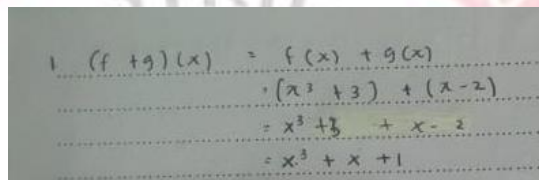 1 (f + g)(x) = f(x) + g(x)
= (x³ + 3) + (x - 2)
= x³ + 3 + x - 2
= x³ + x + 1